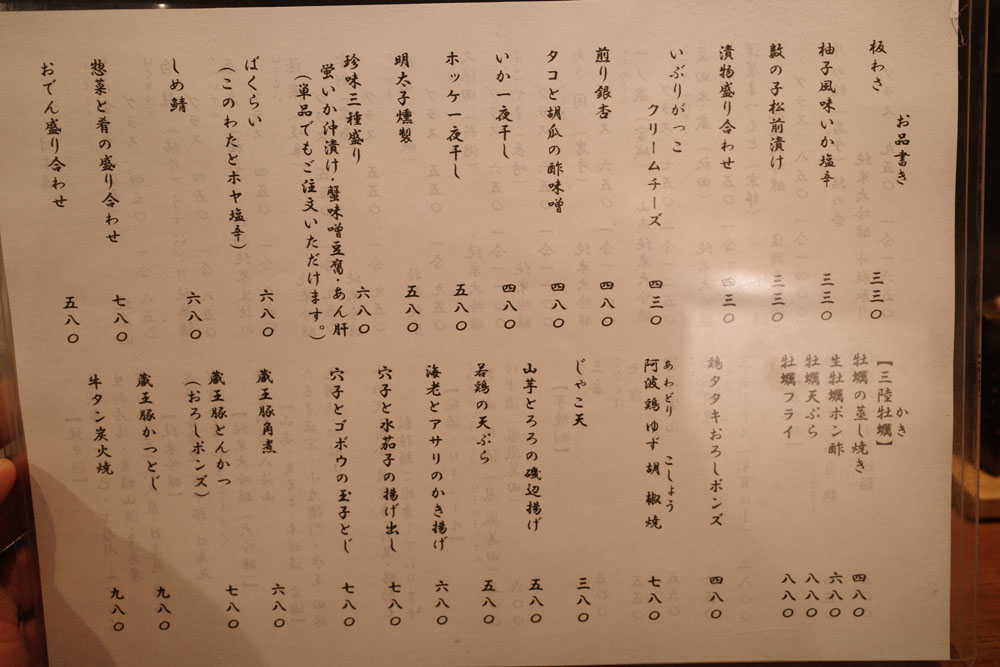 お品書き
板わさ 三三〇
柚子風味いか塩辛 三三〇
数の子松前漬け 三三〇
漬物盛り合わせ 四三〇
いぶりがっこ
クリームチーズ 四三〇
煎り銀杏 四八〇
タコと胡瓜の酢味噌 四八〇
いか一夜干し 四八〇
ホッケ一夜干し 五八〇
明太子燻製 五八〇
珍味三種盛り 六八〇
蛍いか沖漬け・蟹味噌豆腐・あん肝
（単品でもご注文いただけます。）
ばくらい 六八〇
（このわたとホヤ塩辛）
しめ鯖 六八〇
惣菜と肴の盛り合わせ 七八〇
おでん盛り合わせ 五八〇
かき
【三陸牡蠣】
牡蠣の蒸し焼き 四八〇
生牡蠣ポン酢 六八〇
牡蠣天ぷら 八八〇
牡蠣フライ 八八〇
鶏タタキおろしポンズ 四八〇
あわどり こしょう
阿波鶏ゆず胡椒焼 七八〇
じゃこ天 三八〇
山芋とろろの磯辺揚げ 五八〇
若鶏の天ぷら 五八〇
海老とアサリのかき揚げ 六八〇
穴子と水茄子の揚げ出し 七八〇
穴子とゴボウの玉子とじ 七八〇
蔵王豚角煮 六八〇
蔵王豚とんかつ 七八〇
（おろしポンズ）
蔵王豚かつとじ 九八〇
牛タン炭火焼 九八〇